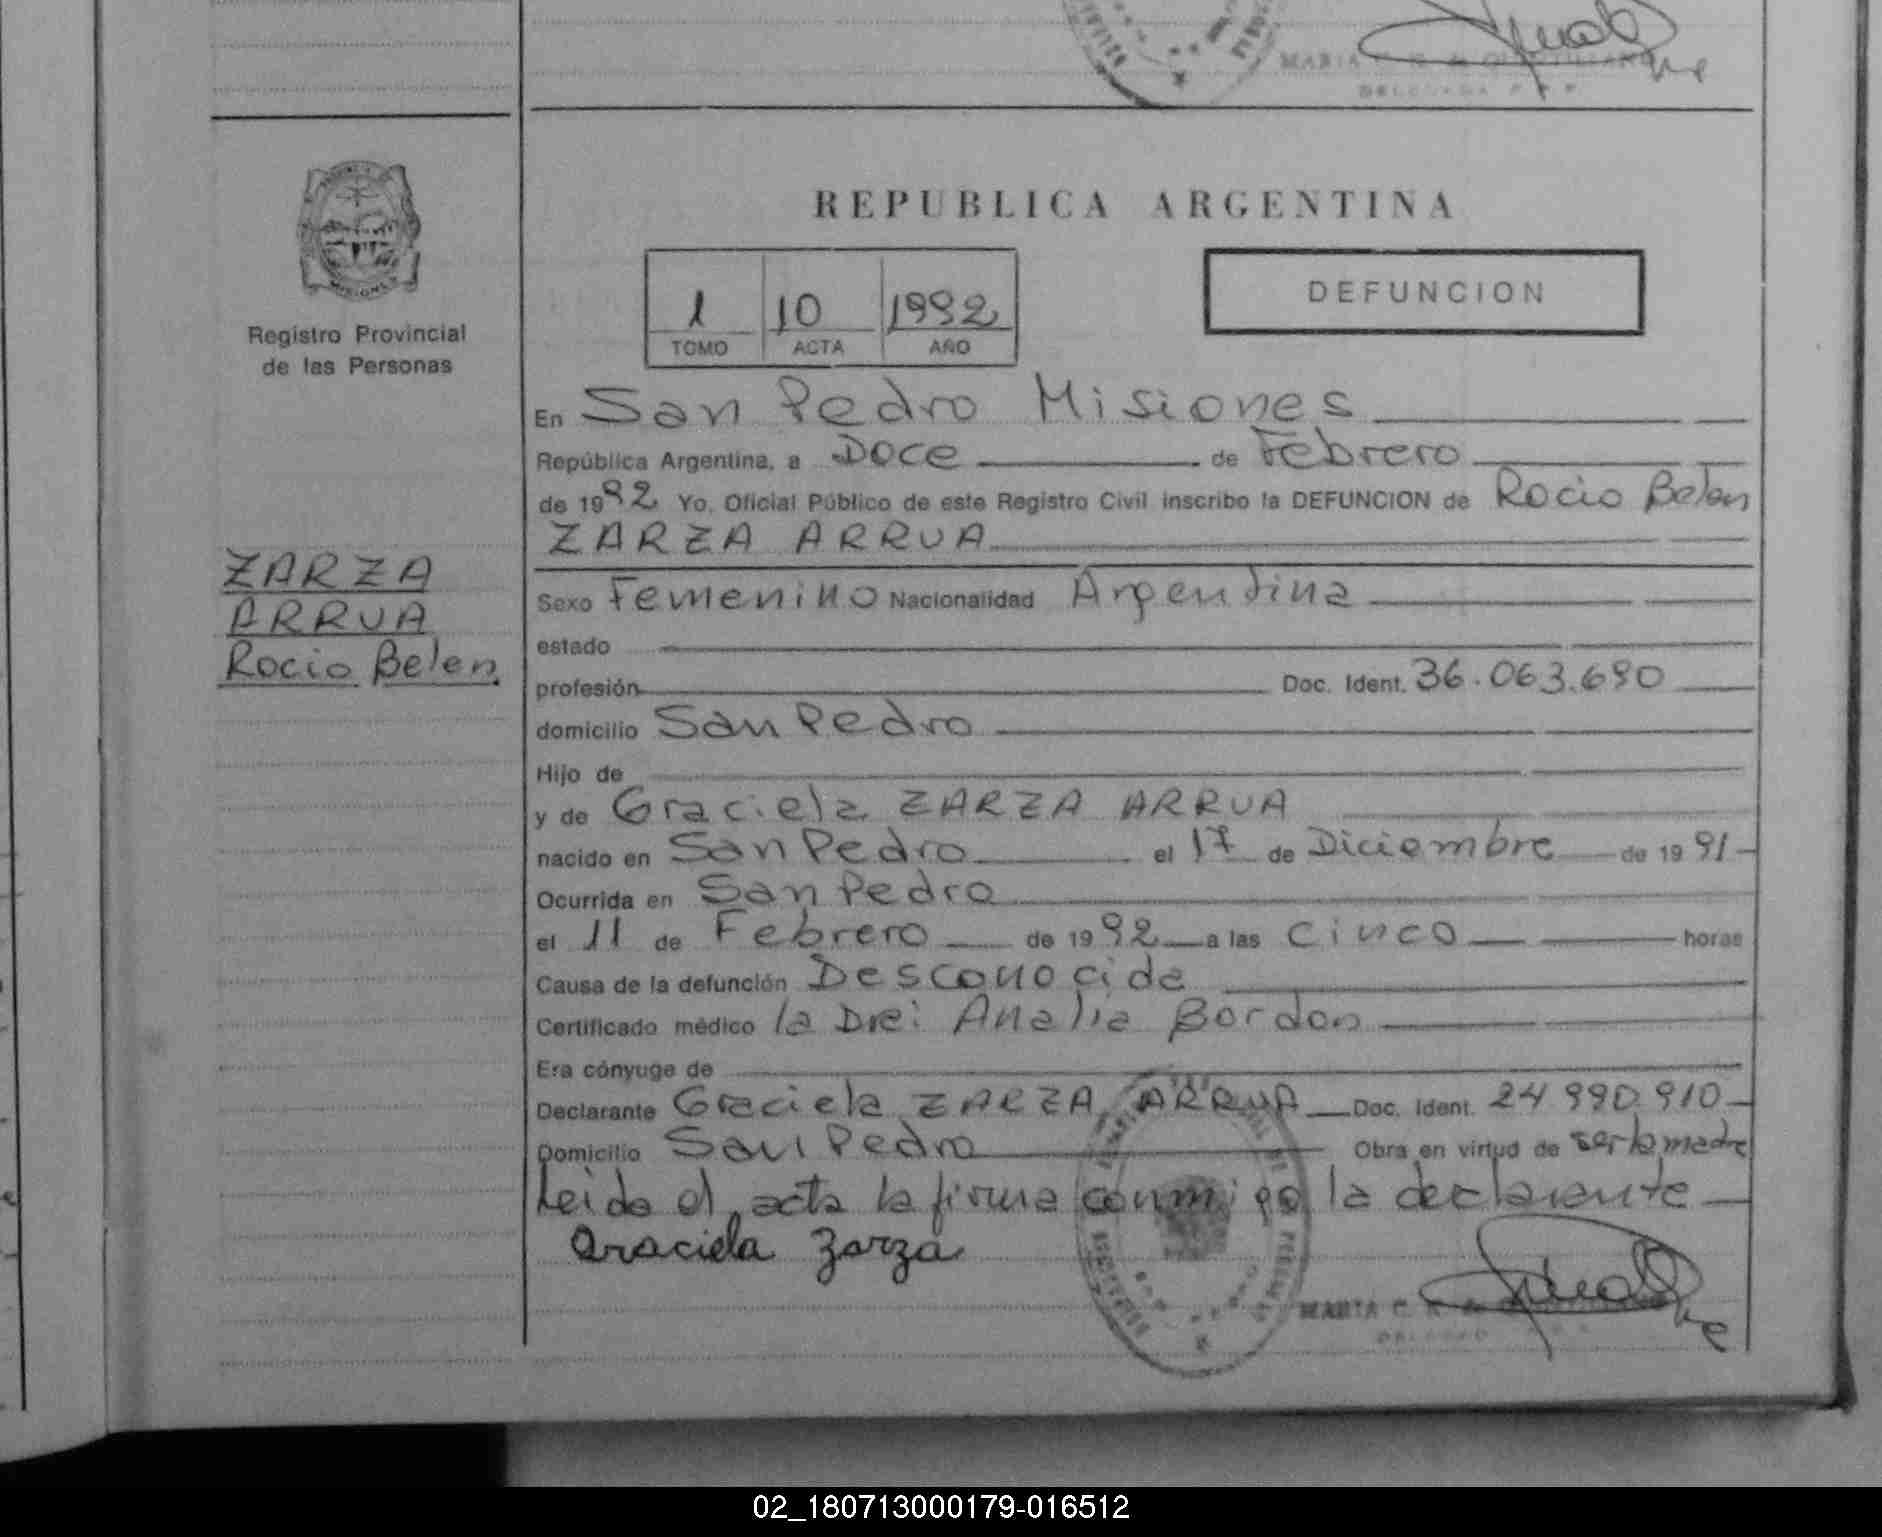 REPUBLICA ARGENTINA
MISIONES
Registro Provincial
de las Personas
1 10 1992
TOMO ACTA AÑO
DEFUNCION
En San Pedro Misiones
República Argentina, a Doce de Febrero
de 1992 Yo, Oficial Público de este Registro Civil inscribo la DEFUNCION de Rocio Belen
ZARZA ARRUA
ZARZA
ARRUA
Rocio Belen
Sexo Femenino Nacionalidad Argentina
estado
profesión Doc. Ident. 36.063.690
domicilio San Pedro
Hijo de
y de Graciela ZARZA ARRUA
nacido en San Pedro el 17 de Diciembre de 1991
Ocurrida en San Pedro
el 11 de Febrero de 1992 a las Cinco horas
Causa de la defunción Desconocida
Certificado médico la Dra: Analia Bordon
Era cónyuge de
Declarante Graciela ZARZA ARRUA Doc. Ident. 24 990.910
Domicilio San Pedro Obra en virtud de ser la madre
Leida el acta la firma conmigo la declarante
Graciela Zarza
MARIA C.
02_180713000179-016512